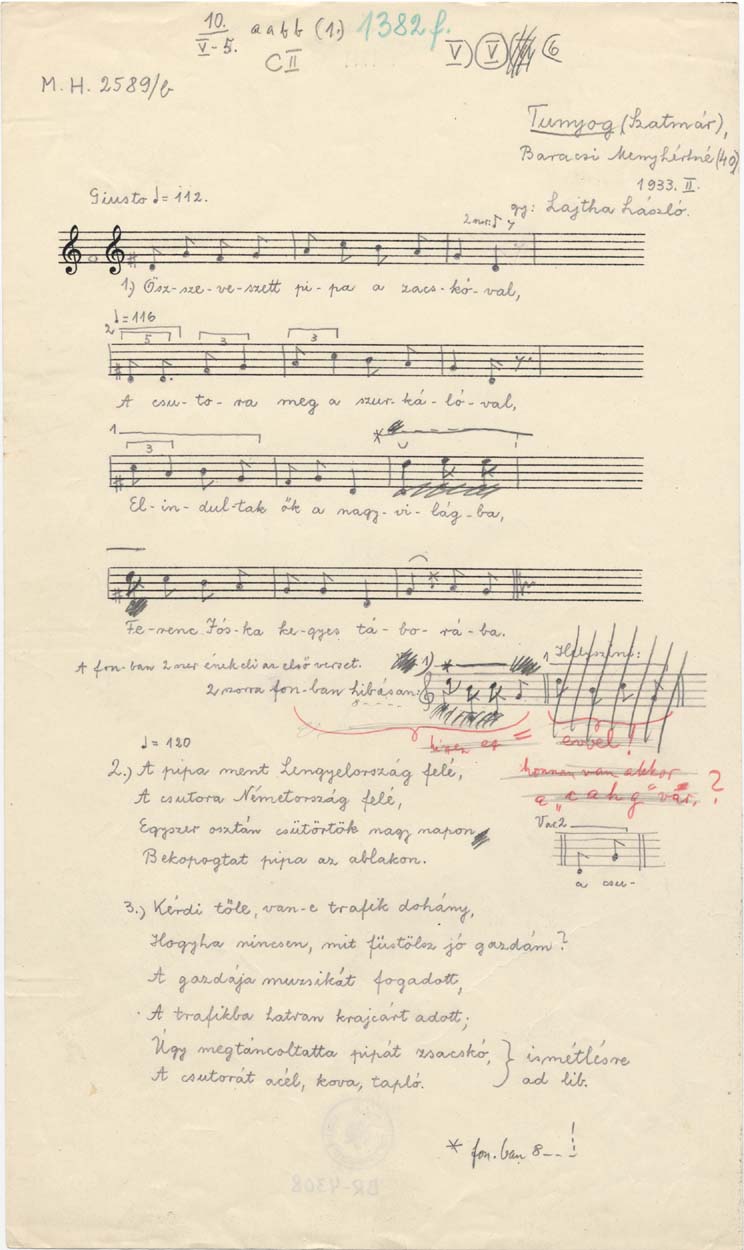 10. a a b b (1.) 1382 f.
V-5. C II V) V 6
M. H. 2589/b
Tunyog (Szatmár),
Baracsi Menyhértné (40)
1933. II.
Giusto ♩= 112. gy: Lajtha László.
1) Ösz-sze-ve-szett pi-pa a zacs-kó-val,
♩=116
2 5 3 3
A csu-to-ra meg a szur-ká-ló-val,
1 *
3
El-in-dul-tak ők a nagy-vi-lág-ba,
Fe-renc Jós-ka ke-gyes tá-bo-rá-ba.
A fon-ban 2szer énekeli az első verset. 1) * 1 Helyszíni:
2 sorra fon-ban hibásan:
8-----
hiszen ez = evvel!
♩= 120
honnan van akkor
a "c a h g" var. ?
2.) A pipa ment Lengyelország felé,
A csutora Németország felé,
Egyszer osztán csütörtök nagy napon
Bekopogtat pipa az ablakon.
Var 2
a csu-
3.) Kérdi tőle, van-e trafik dohány,
Hogyha nincsen, mit füstölsz jó gazdám?
A gazdája muzsikát fogadott,
A trafikba hatvan krajcárt adott;
Úgy megtáncoltatta pipát zsacskó, } ismétlésre
A csutorát acél, kova, tapló. ad lib.
* fon.ban 8---!
BR-4308